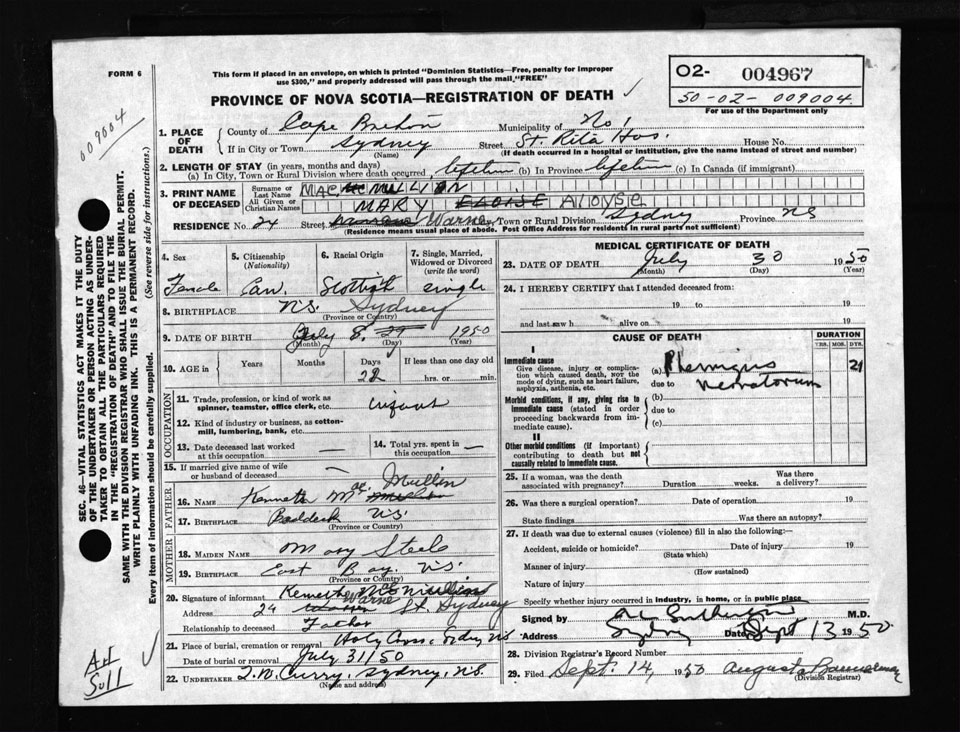 FORM 6
This form if placed in an envelope, on which is printed "Dominion Statistics—Free, penalty for improper
use $300," and properly addressed will pass through the mail "FREE"
PROVINCE OF NOVA SCOTIA—REGISTRATION OF DEATH
O2- 004967
50-02-009004
For use of the Department only
009004
1. PLACE OF DEATH County of Cape Breton Municipality of No 1
If in City or Town Sydney Street St. Rita Hos. House No.
(Name) (If death occurred in a hospital or institution, give the name instead of street and number)
2. LENGTH OF STAY (in years, months and days)
(a) In City, Town or Rural Division where death occurred lifetime (b) In Province lifetime (c) In Canada (if immigrant)
3. PRINT NAME OF DECEASED Surname or Last Name MAC MULLIN
All Given or Christian Names MARY ELOISE Aloyse
RESIDENCE No. 24 Street Warne City, Town or Rural Division Sydney Province NS
(Residence means usual place of abode. Post Office Address for residents in rural parts not sufficient)
4. Sex Female
5. Citizenship (Nationality) Can.
6. Racial Origin Scottish
7. Single, Married, Widowed or Divorced (write the word) single
8. BIRTHPLACE N.S. Sydney
(Province or Country)
9. DATE OF BIRTH July 8 1950
(Month) (Day) (Year)
10. AGE in Years Months Days 22 If less than one day old hrs. or min.
OCCUPATION
11. Trade, profession, or kind of work as
spinner, teamster, office clerk, etc. infant
12. Kind of industry or business, as cotton-
mill, lumbering, bank, etc.
13. Date deceased last worked at this occupation —
14. Total yrs. spent in this occupation —
15. If married give name of wife or husband of deceased —
FATHER
16. NAME Kenneth Mac Mullin
17. BIRTHPLACE Baddeck N.S.
(Province or Country)
MOTHER
18. MAIDEN NAME Mary Steele
19. BIRTHPLACE East Bay. N.S.
(Province or Country)
20. Signature of informant Kenneth
Address 24 Warne St Sydney
Relationship to deceased Father
21. Place of burial, cremation or removal Holy Cross, Sydney NS
Date of burial or removal July 31/50
22. UNDERTAKER T.W. Curry, Sydney, N.S.
(Name and address)
MEDICAL CERTIFICATE OF DEATH
23. DATE OF DEATH July 30 1950
(Month) (Day) (Year)
24. I HEREBY CERTIFY that I attended deceased from:
19 to 19
and last saw h alive on 19
CAUSE OF DEATH DURATION
YRS. MOS. DYS.
I
Immediate cause
Give disease, injury or complica-
tion which caused death, NOT the
mode of dying, such as heart failure,
asphyxia, asthenia, etc.
(a) Phemigus 21
due to Neonatorum
Morbid conditions, if any, giving rise to
immediate cause (stated in order
proceeding backwards from im-
mediate cause).
(b)
due to
(c)
II
Other morbid conditions (if important)
contributing to death but not
causally related to immediate cause.
25. If a woman, was the death
associated with pregnancy? Duration weeks. Was there a delivery?
26. Was there a surgical operation? Date of operation 19
State findings Was there an autopsy?
27. If death was due to external causes (violence) fill in also the following:—
Accident, suicide or homicide? Date of injury 19
(State which)
Manner of injury
(How sustained)
Nature of injury
Specify whether injury occurred in industry, in home, or in public place
Signed by Sutherland M.D.
Address Sydney Date Sept 13 1950
28. Division Registrar's Record Number
29. Filed Sept. 14, 1950 Augusta Bannerman
(Division Registrar)
SEC. 46—VITAL STATISTICS ACT MAKES IT THE DUTY
OF THE UNDERTAKER OR PERSON ACTING AS UNDER-
TAKER TO OBTAIN ALL THE PARTICULARS REQUIRED
IN THE "REGISTRATION OF DEATH" AND TO FILE THE
SAME WITH THE DIVISION REGISTRAR WHO SHALL ISSUE THE BURIAL PERMIT.
WRITE PLAINLY WITH UNFADING INK. THIS IS A PERMANENT RECORD.
Every item of information should be carefully supplied. (See reverse side for instructions.)